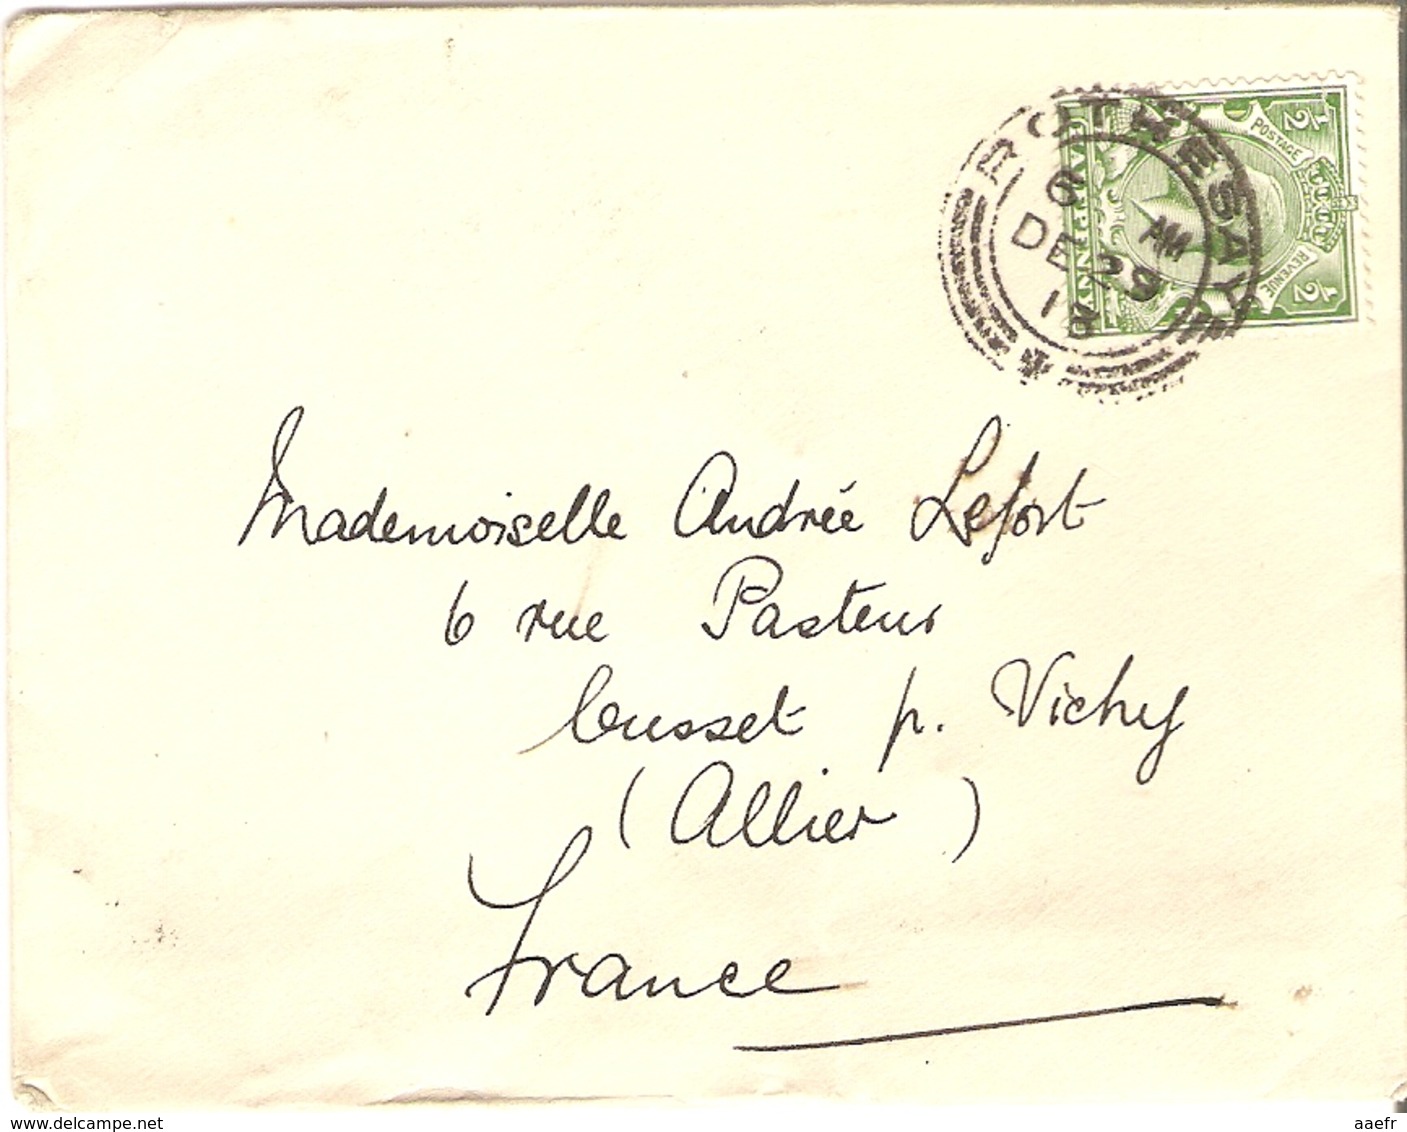 ROTHESAY
6 AM
DE 29
13
½ POSTAGE REVENUE ½
HALFPENNY
Mademoiselle Andrée Lefort
6 rue Pasteur
Cusset p. Vichy
(Allier)
France
www.delcampe.net
aaefr